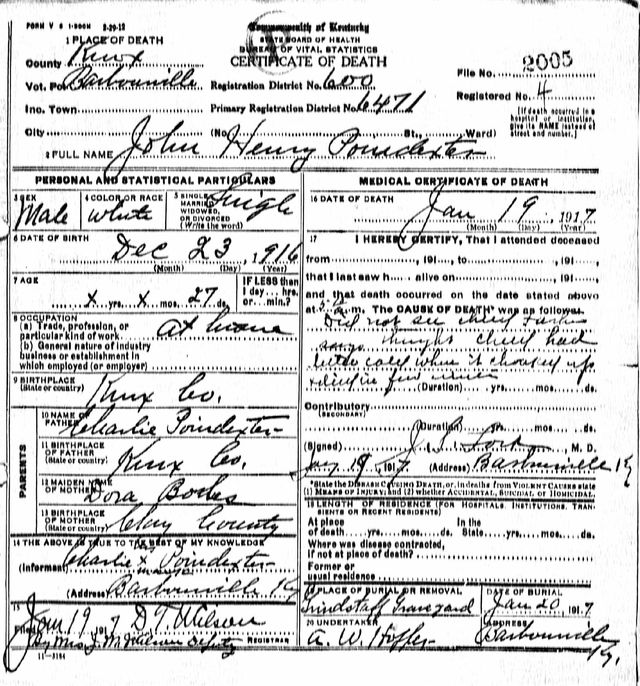 FORM V S 1-500M 8-29-12
Commonwealth of Kentucky
STATE BOARD OF HEALTH
BUREAU OF VITAL STATISTICS
CERTIFICATE OF DEATH
1 PLACE OF DEATH
County Knox
Vot. Barbourville
Registration District No. 600
File No. 2005
Inc. Town
Primary Registration District No. 6471
Registered No. 4
City
(No. St., Ward)
[If death occurred in a hospital or institution, give its NAME instead of street and number.]
2 FULL NAME John Henry Poindexter
PERSONAL AND STATISTICAL PARTICULARS
3 SEX Male
4 COLOR OR RACE white
5 SINGLE, MARRIED, WIDOWED, OR DIVORCED (Write the word) Single
6 DATE OF BIRTH
Dec 23, 1916
(Month) (Day) (Year)
7 AGE
x yrs. x mos. 27 ds.
IF LESS than 1 day... hrs. or... min.?
8 OCCUPATION
(a) Trade, profession, or particular kind of work at home
(b) General nature of industry business or establishment in which employed (or employer)
9 BIRTHPLACE (State or country) Knox Co.
PARENTS
10 NAME OF FATHER Charlie Poindexter
11 BIRTHPLACE OF FATHER (State or country) Knox Co.
12 MAIDEN NAME OF MOTHER Dora
13 BIRTHPLACE OF MOTHER (State or country) Clay County
14 THE ABOVE IS TRUE TO THE BEST OF MY KNOWLEDGE
(Informant) Charlie x Poindexter
(Address) Barbourville Ky
15
Filed Jan 19 1917 D. T. Wilson
REGISTRAR
By Mrs J. M. Wilson Deputy
11-3184
MEDICAL CERTIFICATE OF DEATH
16 DATE OF DEATH
Jan 19, 1917
(Month) (Day) (Year)
17 I HEREBY CERTIFY, That I attended deceased
from ..., 191..., to ..., 191...
that I last saw h... alive on ..., 191...
and that death occurred on the date stated above
at a.m. The CAUSE OF DEATH was as follows:
Did not see child Father
says child had
cold when it choked up
few
(Duration) yrs. mos. ds.
Contributory
(SECONDARY)
(Duration) yrs. mos. ds.
(Signed) J. S. Lock M. D.
Jan 19, 1917 (Address) Barbourville Ky
*State the DISEASE CAUSING DEATH, or, in deaths from VIOLENT CAUSES state (1) MEANS OF INJURY; and (2) whether ACCIDENTAL, SUICIDAL or HOMICIDAL.
18 LENGTH OF RESIDENCE (FOR HOSPITALS, INSTITUTIONS, TRANSIENTS OR RECENT RESIDENTS)
At place of death yrs. mos. ds. In the State yrs. mos. ds.
Where was disease contracted, if not at place of death?
Former or usual residence
19 PLACE OF BURIAL OR REMOVAL
Grindstaff Graveyard
DATE OF BURIAL
Jan 20, 1917
20 UNDERTAKER
A. W. Hopper
ADDRESS
Barbourville Ky.